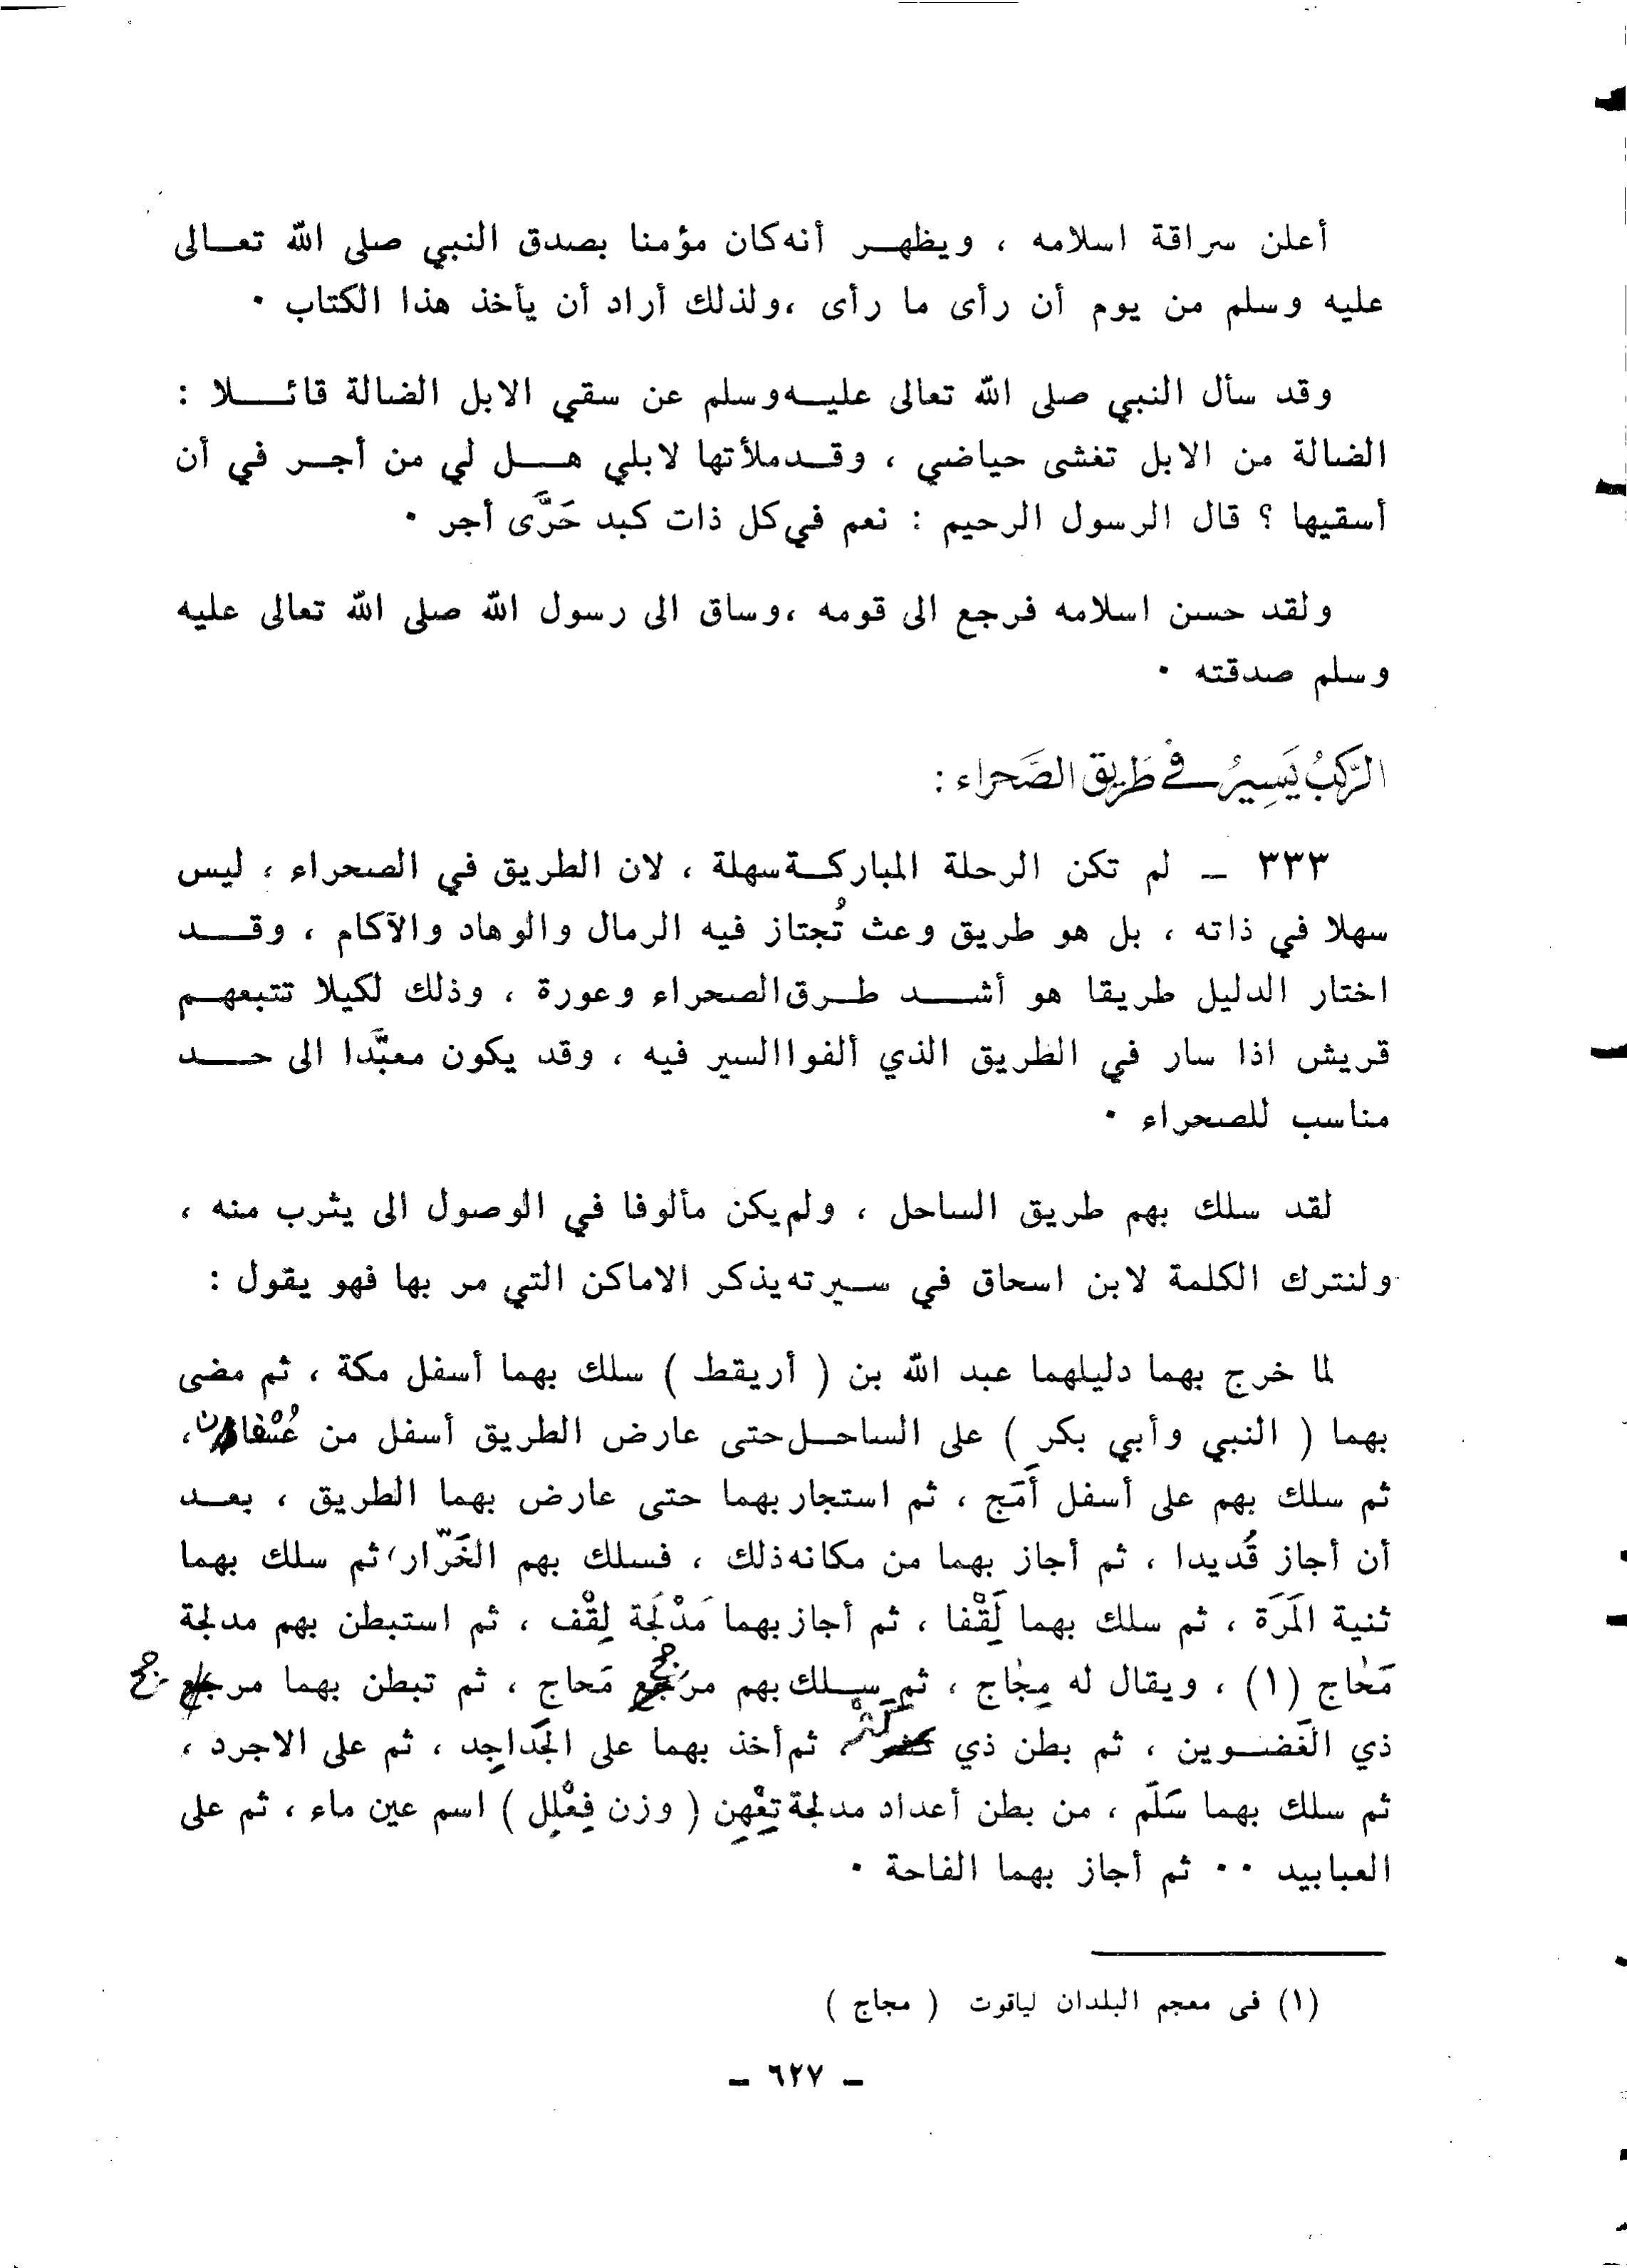 أعلن سراقة اسلامه ، ويظهر أنه كان مؤمنا بصدق النبي صلى الله تعالى
عليه وسلم من يوم أن رأى ما رأى ، ولذلك أراد أن يأخذ هذا الكتاب ٠
وقد سأل النبي صلى الله تعالى عليه وسلم عن سقي الابل الضالة قائلا :
الضالة من الابل تغشى حياضي ، وقد ملأتها لابلي هل لي من أجر في أن
أسقيها ؟ قال الرسول الرحيم : نعم في كل ذات كبد حَرَّى أجر ٠
ولقد حسن اسلامه فرجع الى قومه ، وساق الى رسول الله صلى الله تعالى عليه
وسلم صدقته ٠
الرَّكبُ يَسِيرُ في طَريق الصَّحراء :
٣٣٣ ـ لم تكن الرحلة المباركة سهلة ، لان الطريق في الصحراء ، ليس
سهلا في ذاته ، بل هو طريق وعث تُجتاز فيه الرمال والوهاد والآكام ، وقد
اختار الدليل طريقا هو أشد طرق الصحراء وعورة ، وذلك لكيلا تتبعهم
قريش اذا سار في الطريق الذي ألفوا السير فيه ، وقد يكون معبَّدا الى حد
مناسب للصحراء ٠
لقد سلك بهم طريق الساحل ، ولم يكن مألوفا في الوصول الى يثرب منه ،
ولنترك الكلمة لابن اسحاق في سيرته يذكر الاماكن التي مر بها فهو يقول :
لما خرج بهما دليلهما عبد الله بن ( أريقط ) سلك بهما أسفل مكة ، ثم مضى
بهما ( النبي وأبي بكر ) على الساحل حتى عارض الطريق أسفل من عُسْفان ،
ثم سلك بهم على أسفل أَمَج ، ثم استجار بهما حتى عارض بهما الطريق ، بعد
أن أجاز قُديدا ، ثم أجاز بهما من مكانه ذلك ، فسلك بهم الخَرّار ، ثم سلك بهما
ثنية المَرَة ، ثم سلك بهما لَِقْفا ، ثم أجاز بهما مَدْلَجة لِقْف ، ثم استبطن بهم مدلجة
مَحاج (١) ، ويقال له مِجاج ، ثم سلك بهم مرجح مَحاج ، ثم تبطن بهما مرجح
ذي الغَضوين ، ثم بطن ذي كَشْر ، ثم أخذ بهما على الجَداجِد ، ثم على الاجرد ،
ثم سلك بهما سَلَم ، من بطن أعداد مدلجة تِعْهِن ( وزن فِعْلِل ) اسم عين ماء ، ثم على
العبابيد ٠٠ ثم أجاز بهما الفاحة ٠
(١) فى معجم البلدان لياقوت ( مجاج )
ـ ٦٢٧ ـ